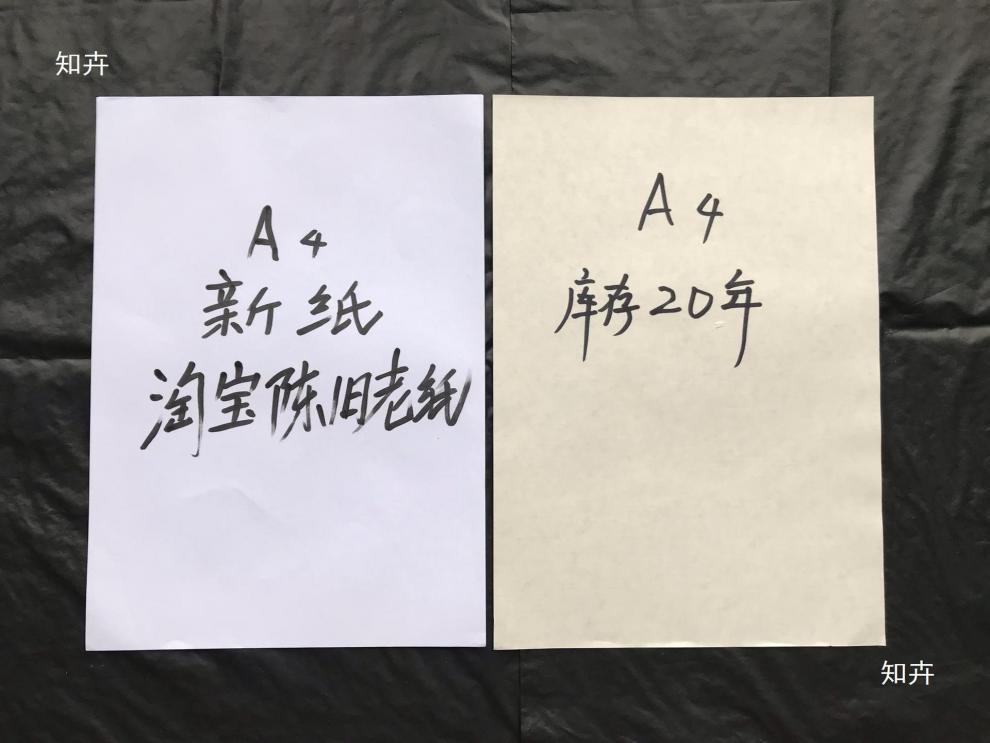 知卉
A4
新纸
淘宝陈旧老纸
A4
库存20年
知卉